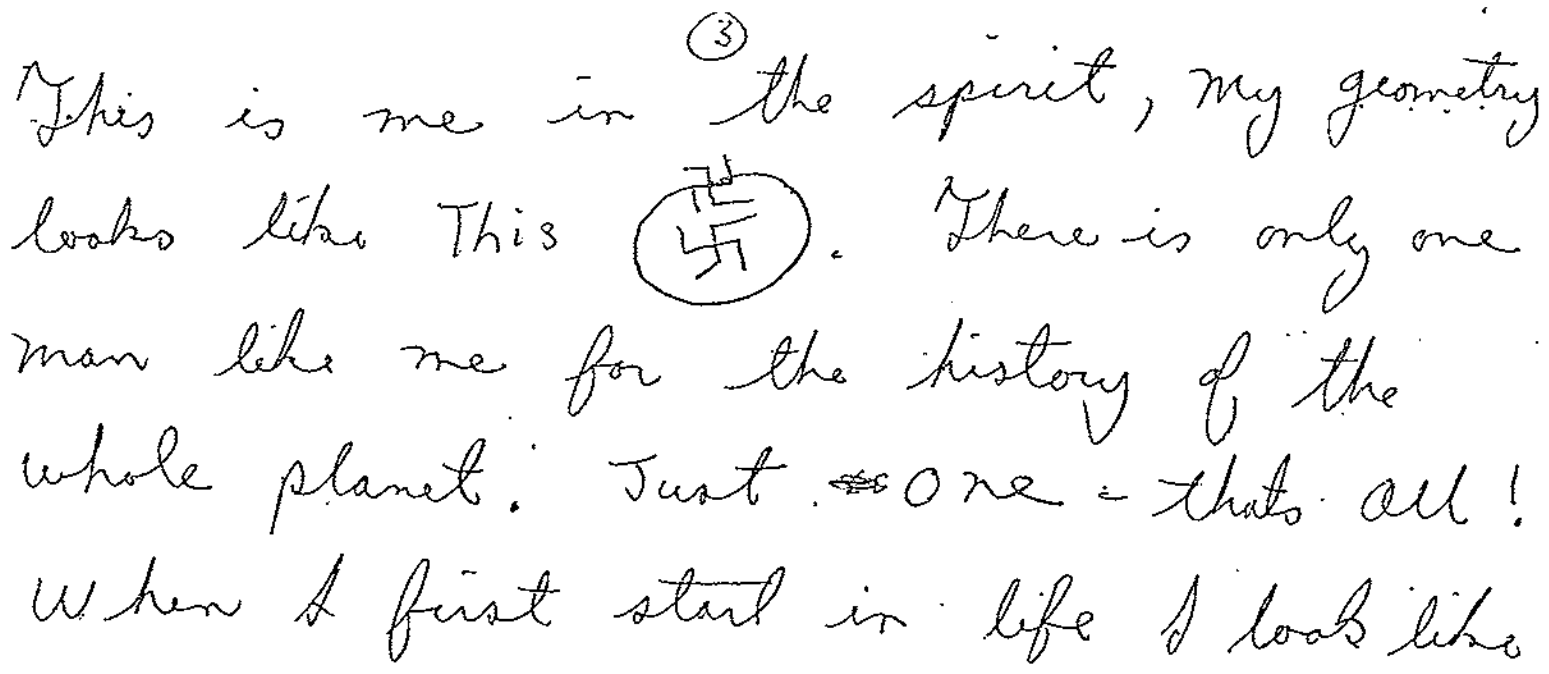 ③
This is me in the spirit, my geometry
looks like This . There is only one
man like me for the history of the
whole planet. Just one - thats all!
When I first start in life I look like